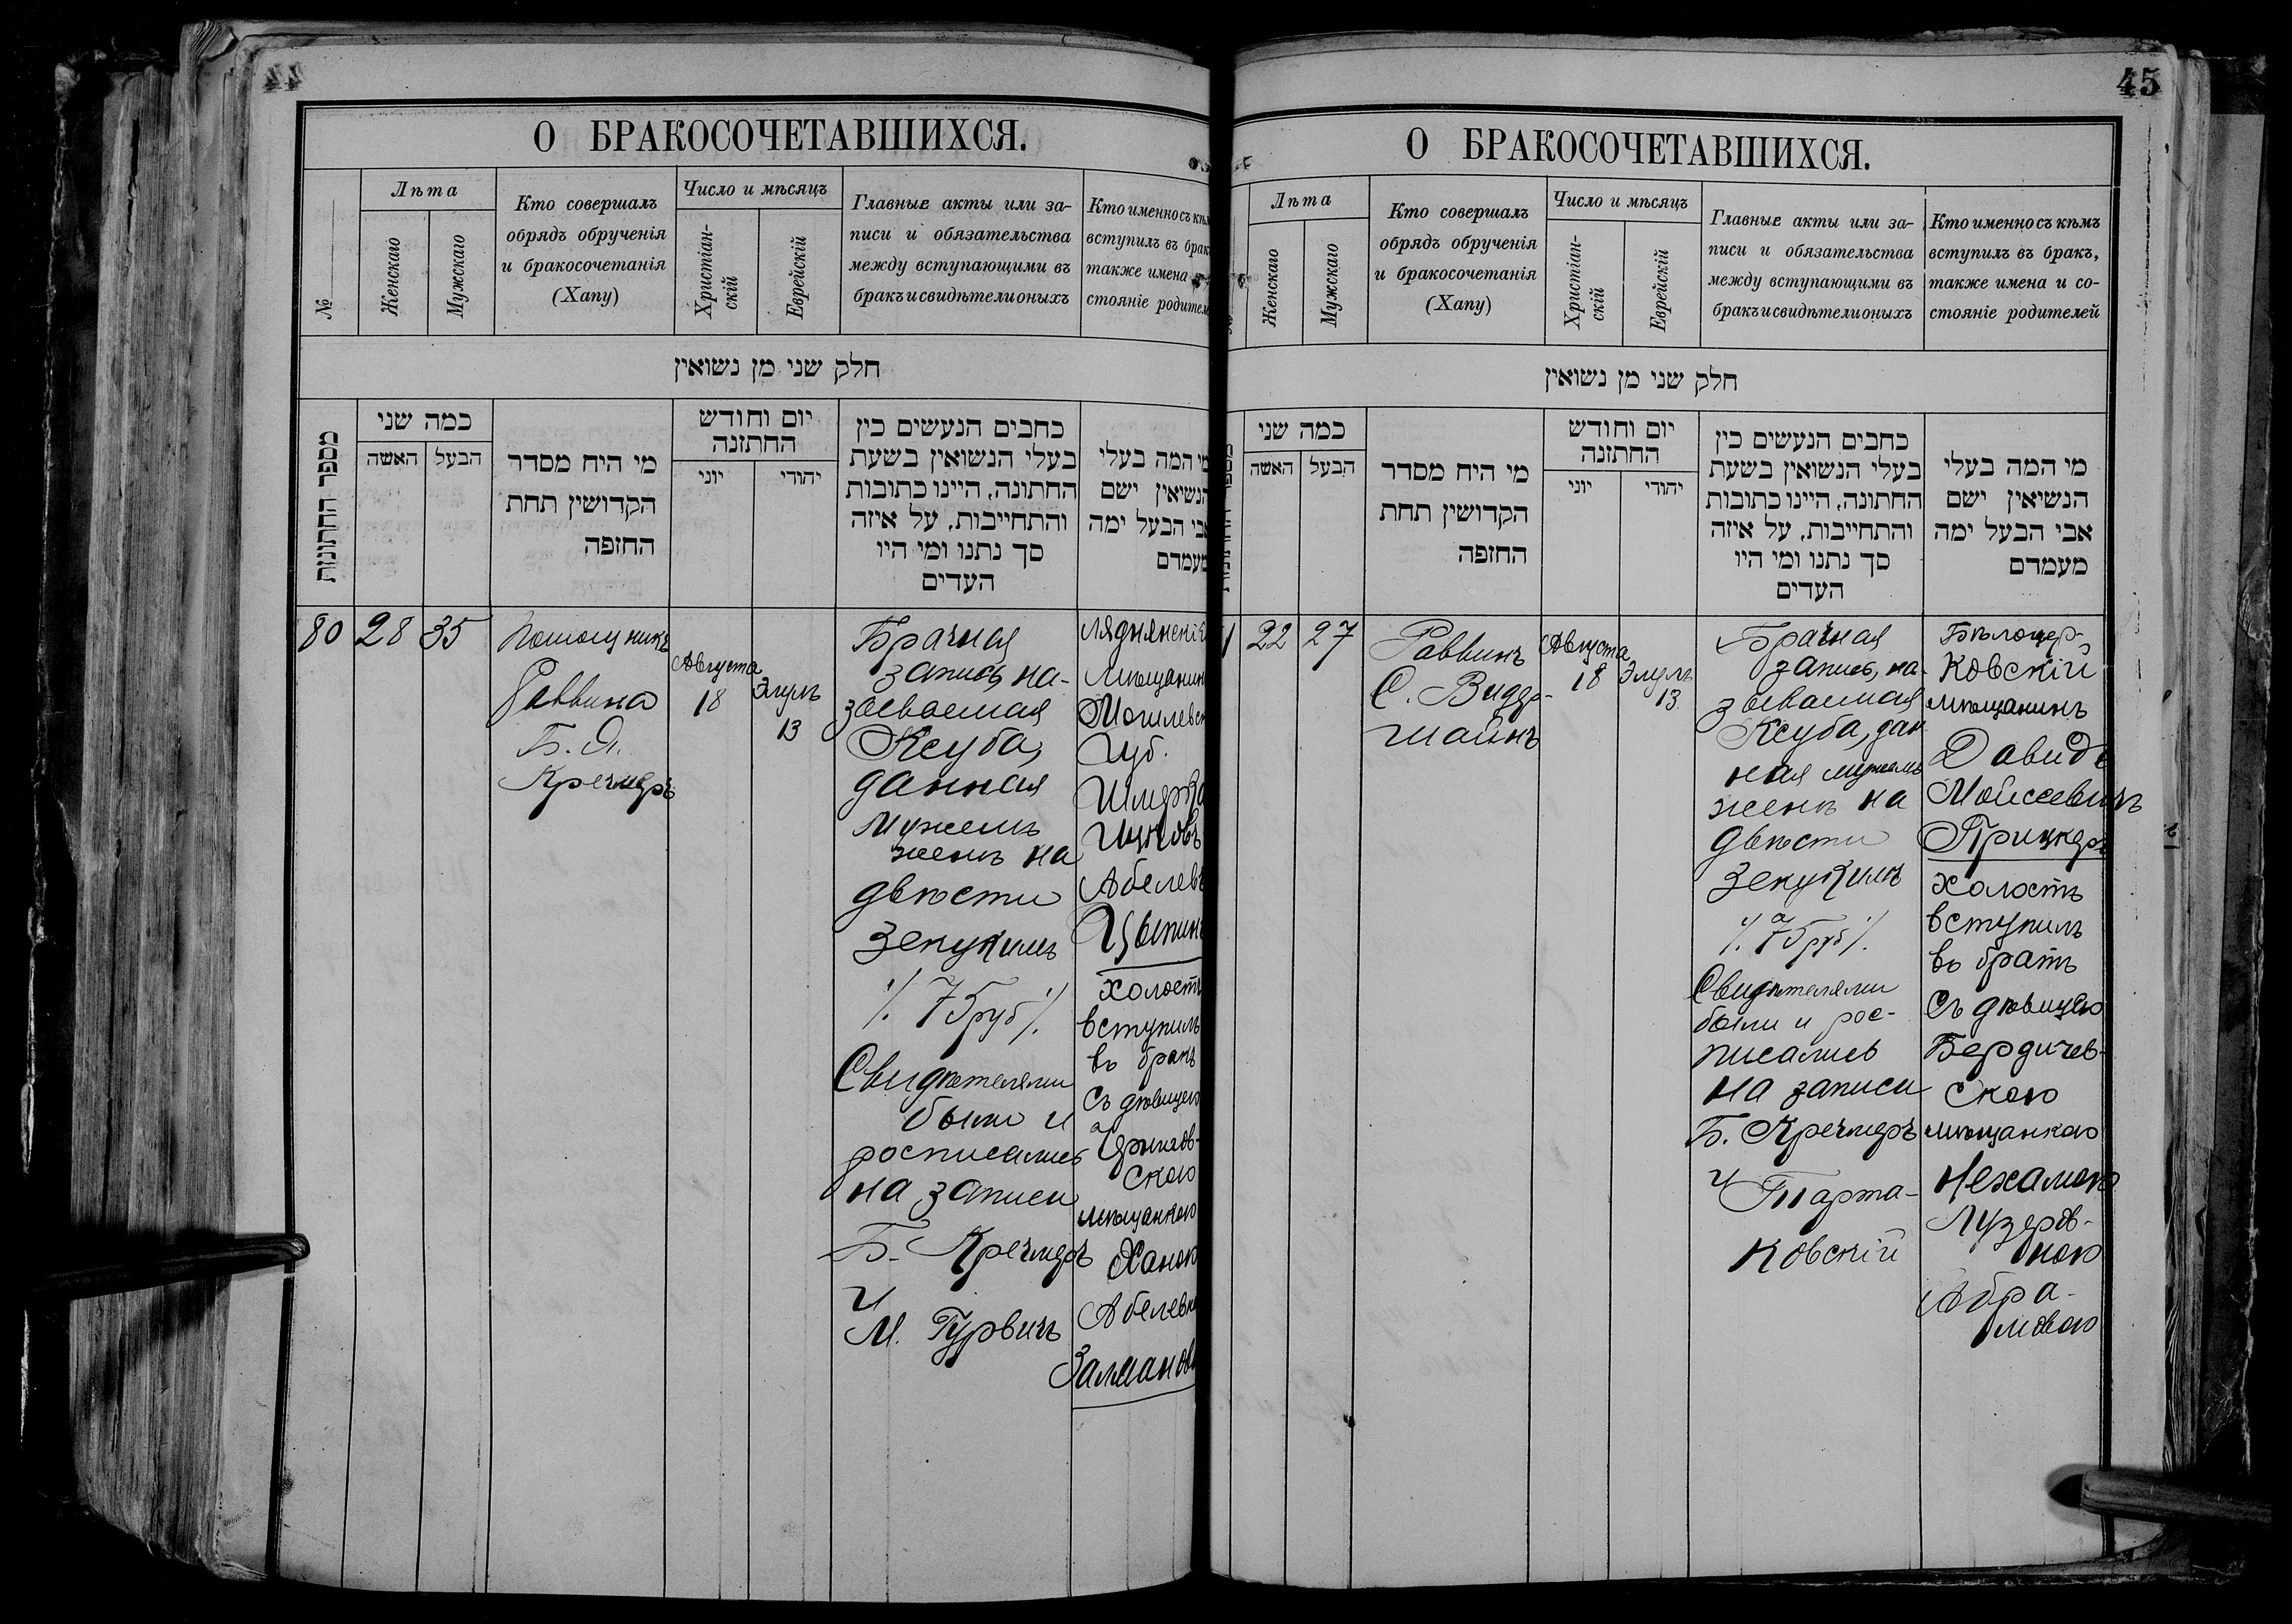 44
О БРАКОСОЧЕТАВШИХСЯ.
№
Лѣта
Женскаго
Мужскаго
Кто совершалъ
обрядъ обрученія
и бракосочетанія
(Хапу)
Число и мѣсяцъ
Христіан-
скій
Еврейскій
Главные акты или за-
писи и обязательства
между вступающими въ
бракъ и свидѣтели оныхъ
Кто именно съ кѣм
вступилъ въ брак
также имена
стояніе родител
חלק שני מן נשואין
מספר החתונות
כמה שני
האשה
הבעל
מי היח מסדר
הקדושין תחת
החופה
יום וחודש
החתונה
יוני
יהודי
כחבים הנעשים כין
בעלי הנשואין בשעת
החתונה, היינו כתובות
והתחייבות, על איזה
סך נתנו ומי היו
העדים
מי המה בעלי
הנשיאין ישם
אבי הבעל ימה
מעמדם
80
28
35
Помощникъ
Раввина
Б. Я.
Кречмеръ
Августа
18
Элулъ
13
Брачная
запись, на-
зываемая
Ксуба,
данная
мужемъ
женѣ на
двѣсти
зекукимъ
/. 75 руб /.
Свидѣтелями
были и
росписались
на записи
Б. Кречмеръ
и
М. Гурвичъ
Ляднянскій
мѣщанин
Могилевск
Губ.
Шмерка
Ицковъ
Абелевъ
Цыпинъ
холостъ
вступилъ
въ бракъ
съ дѣвицею
скою
мѣщанкою
Ханою
Абелевн
Залманов
45
О БРАКОСОЧЕТАВШИХСЯ.
Лѣта
Женскаго
Мужскаго
Кто совершалъ
обрядъ обрученія
и бракосочетанія
(Хапу)
Число и мѣсяцъ
Христіан-
скій
Еврейскій
Главные акты или за-
писи и обязательства
между вступающими въ
бракъ и свидѣтели оныхъ
Кто именно съ кѣмъ
вступилъ въ бракъ,
также имена и со-
стояніе родителей
חלק שני מן נשואין
כמה שני
האשה
הבעל
מי היח מסדר
הקדושין תחת
החופה
יום וחודש
החתונה
יוני
יהודי
כחבים הנעשים כין
בעלי הנשואין בשעת
החתונה, היינו כתובות
והתחייבות, על איזה
סך נתנו ומי היו
העדים
מי המה בעלי
הנשיאין ישם
אבי הבעל ימה
מעמדם
1
22
27
Раввинъ
С. Видер-
шайнъ
Августа
18
Элулъ
13
Брачная
запись, на-
зываемая
Ксуба, дан
ная мужемъ
женѣ на
двѣсти
зекукимъ
/. 75 руб /.
Свидѣтелями
были и рос-
писались
на записи
Б. Кречмеръ
и
Тарта-
ковскій
Бѣлоцер-
ковскій
мѣщанинъ
Давидъ
Мойсеевичъ
Прицкеръ
холостъ
вступилъ
въ бракъ
съ дѣвицею
Бердичев-
скою
мѣщанкою
Нехамою
Лузеров-
ною
Абра-
мовою